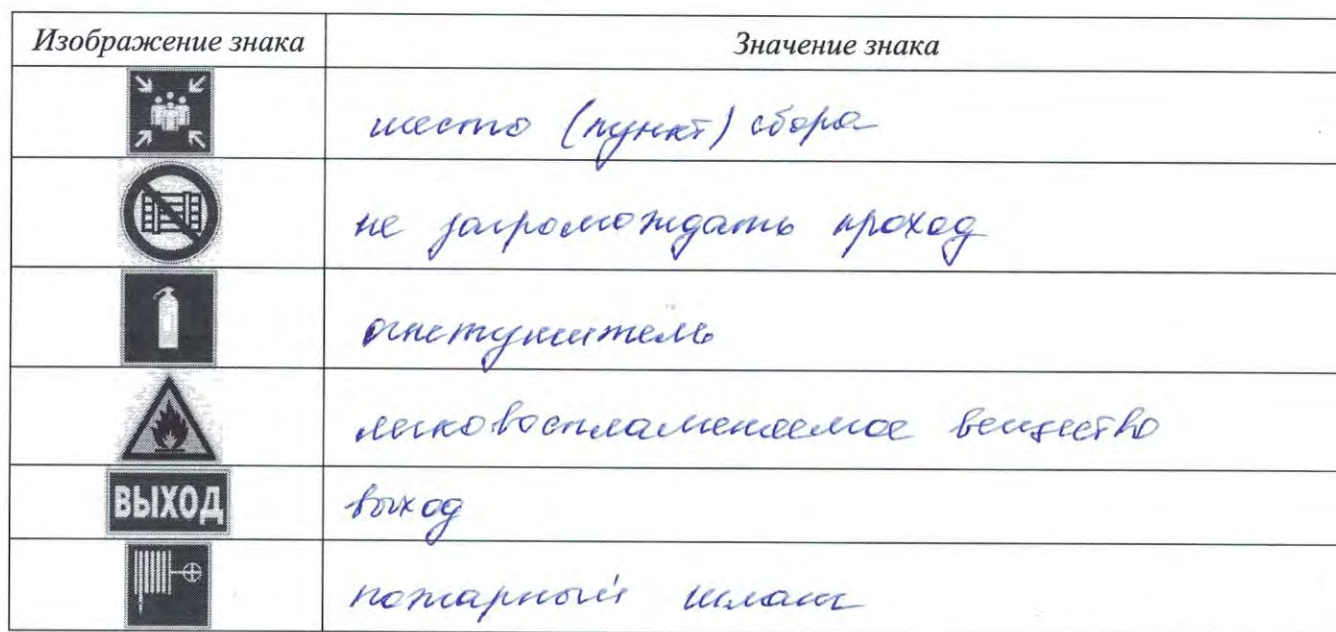 Изображение знака Значение знака
место (пункт) сбора
не загромождать проход
огнетушитель
легковоспламеняемое вещество
ВЫХОД выход
пожарный шланг